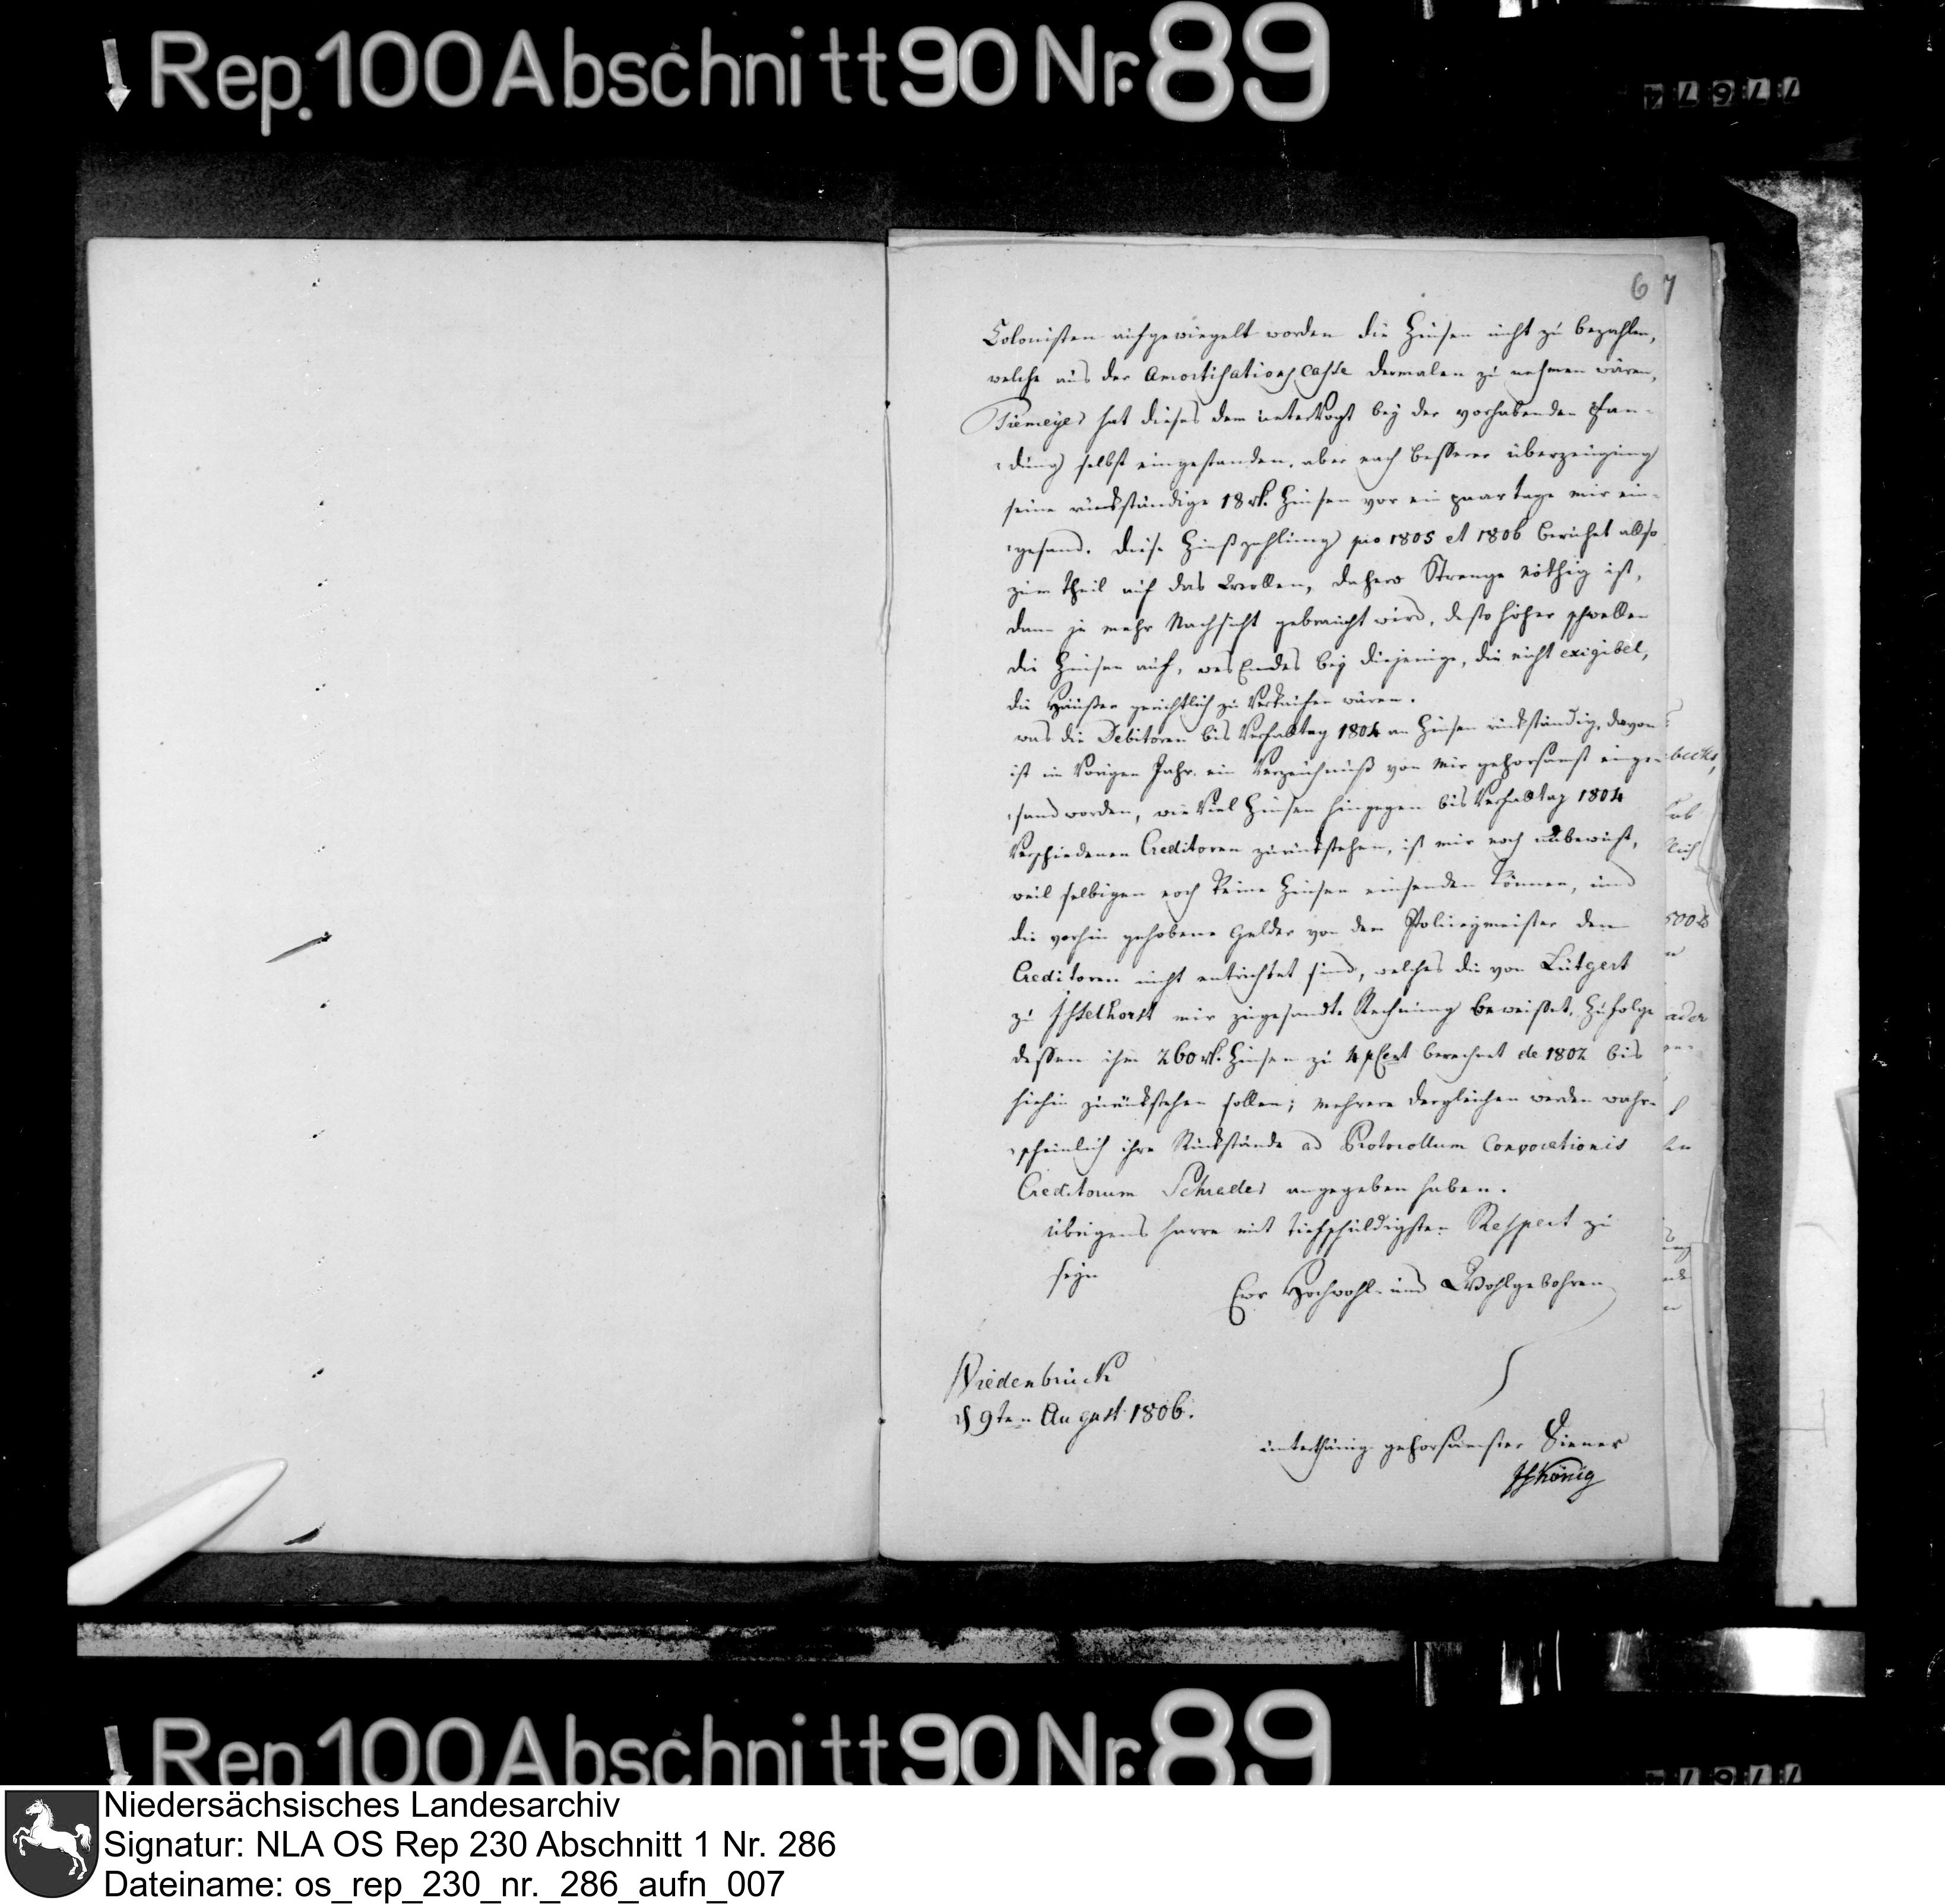 Rep. 100 Abschnitt 90 Nr. 89
77674
6 7
Colonisten aufgewiegelt worden die Zinsen nicht zu bezahlen,
welche aus der Amortisations casse dermalen zu nehmen wären,
Tiemeyer hat dieses dem untervogt bey der vorhabenden Pfan-
dung selbst eingestanden, aber nach besserer überzeugung
seine rückständige 18 rt. Zinsen vor ein paar tage mir ein-
gesand. diese Zinßzahlung pro 1805 et 1806 beruhet allso
zum theil auf das Wollen, dahero Strenge nöthig ist,
dann je mehr Nachsicht gebraucht wird, desto höher schwellen
die Zinsen auf, wes Endes bey diejenige, die nicht exigibel,
die Häußer gerichtlich zu Verkaufen wären.
was die Debitoren bis Verfalltag 1804 an Zinsen rückständig, davon
ist im Vorigen Jahr ein Verzeichnuß von mir gehorsamst einge-
sand worden, wie Viel Zinsen hingegen bis Verfalltag 1804
Verschiedenen Creditoren zurückstehen, ist mir noch unbewust,
weil selbigen noch keine Zinsen einsenden können, und
die vorhin gehobene Gelder von dem Policeymeister den
Creditoren nicht entrichtet sind, welches die von Lütgert
zu Isselhorst mir zugesandte Rechnung beweißet, Zufolge
dessen ihm 260 rt. Zinsen zu 4 pCent berechnet de 1802 bis
hiehin zurückstehen sollen; mehrere dergleichen werden wahr-
scheinlich ihre Rückstände ad Protocollum Convocationis
Creditorum Schrader angegeben haben.
übrigens harre mit tiefschuldigsten Respect zu
seyn
Ewr Hochwohl- und Wohlgebohren
Wiedenbrück
d 9ten August 1806.
unterthänig gehorsamster Diener
König
Rep 100 Abschnitt 90 Nr. 89
77674
Niedersächsisches Landesarchiv
Signatur: NLA OS Rep 230 Abschnitt 1 Nr. 286
Dateiname: os_rep_230_nr._286_aufn_007